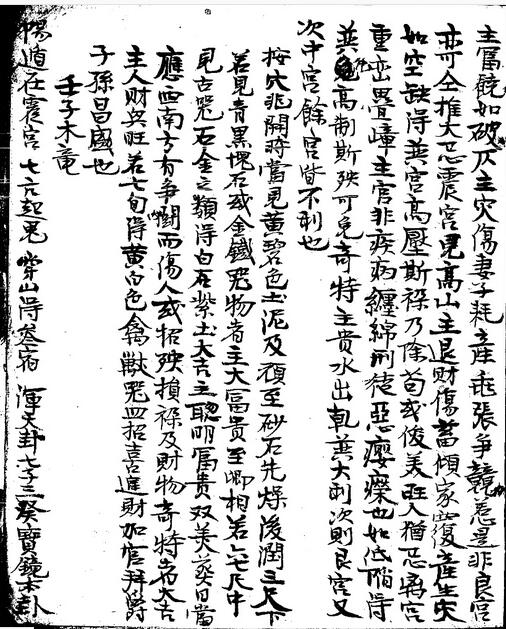 主富饒如破仄主灾傷妻子耗産乖張争競惹是非良宮
亦可全推大忌震宮見高山主退財傷蓄傾家復産生灾
如空缺得巽宮高壓斯祿乃除苟或俊美旺人猶忌离宮
重峦疊嶂主官非疾病纏綿刑徒惡瘿瘵也如低陷得
巽兔高制斯殃可免奇特主貴水出乹巽大利次則艮宮又
次中宮餘宮皆不利也
按穴非開時當見黄碧色土泥及頑至砂石先燥後潤三尺下
若見青黑塊石或金鐵器物者主大富貴至卿相若六七尺中
見古器石金之類得白石紫土大吉主聪明富貴双美葵日當
應西南方有争鬬而傷人或招殃損祿及財物奇特者大吉
主人財興旺若七旬得黄白色禽獸器皿招喜進財加官拜爵
子孫昌盛也
壬子木竜
陽遁在震宮七六起鬼穿山得參宿渾天卦七子三癸寶鏡木卦